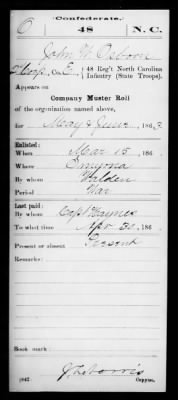 (Confederate.)
O 48 N. C.
John W. Osborn
Corp., Co. E, 48 Reg't North Carolina
Infantry (State Troops).
Appears on
Company Muster Roll
of the organization named above,
for May & June, 1863
Enlisted:
When Mar 15, 186
Where Smyrna
By whom Walden
Period War
Last paid:
By whom Capt Haynes
To what time Apr 30, 186
Present or absent Present
Remarks:
Book mark:
(642)
Copyist.